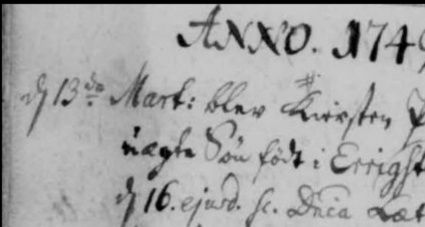 ANNO. 174
d 13 do Mart: blev Kirsten P
uægte Søn født i Errigst
d 16. ejusd. sc. Dnica Læt